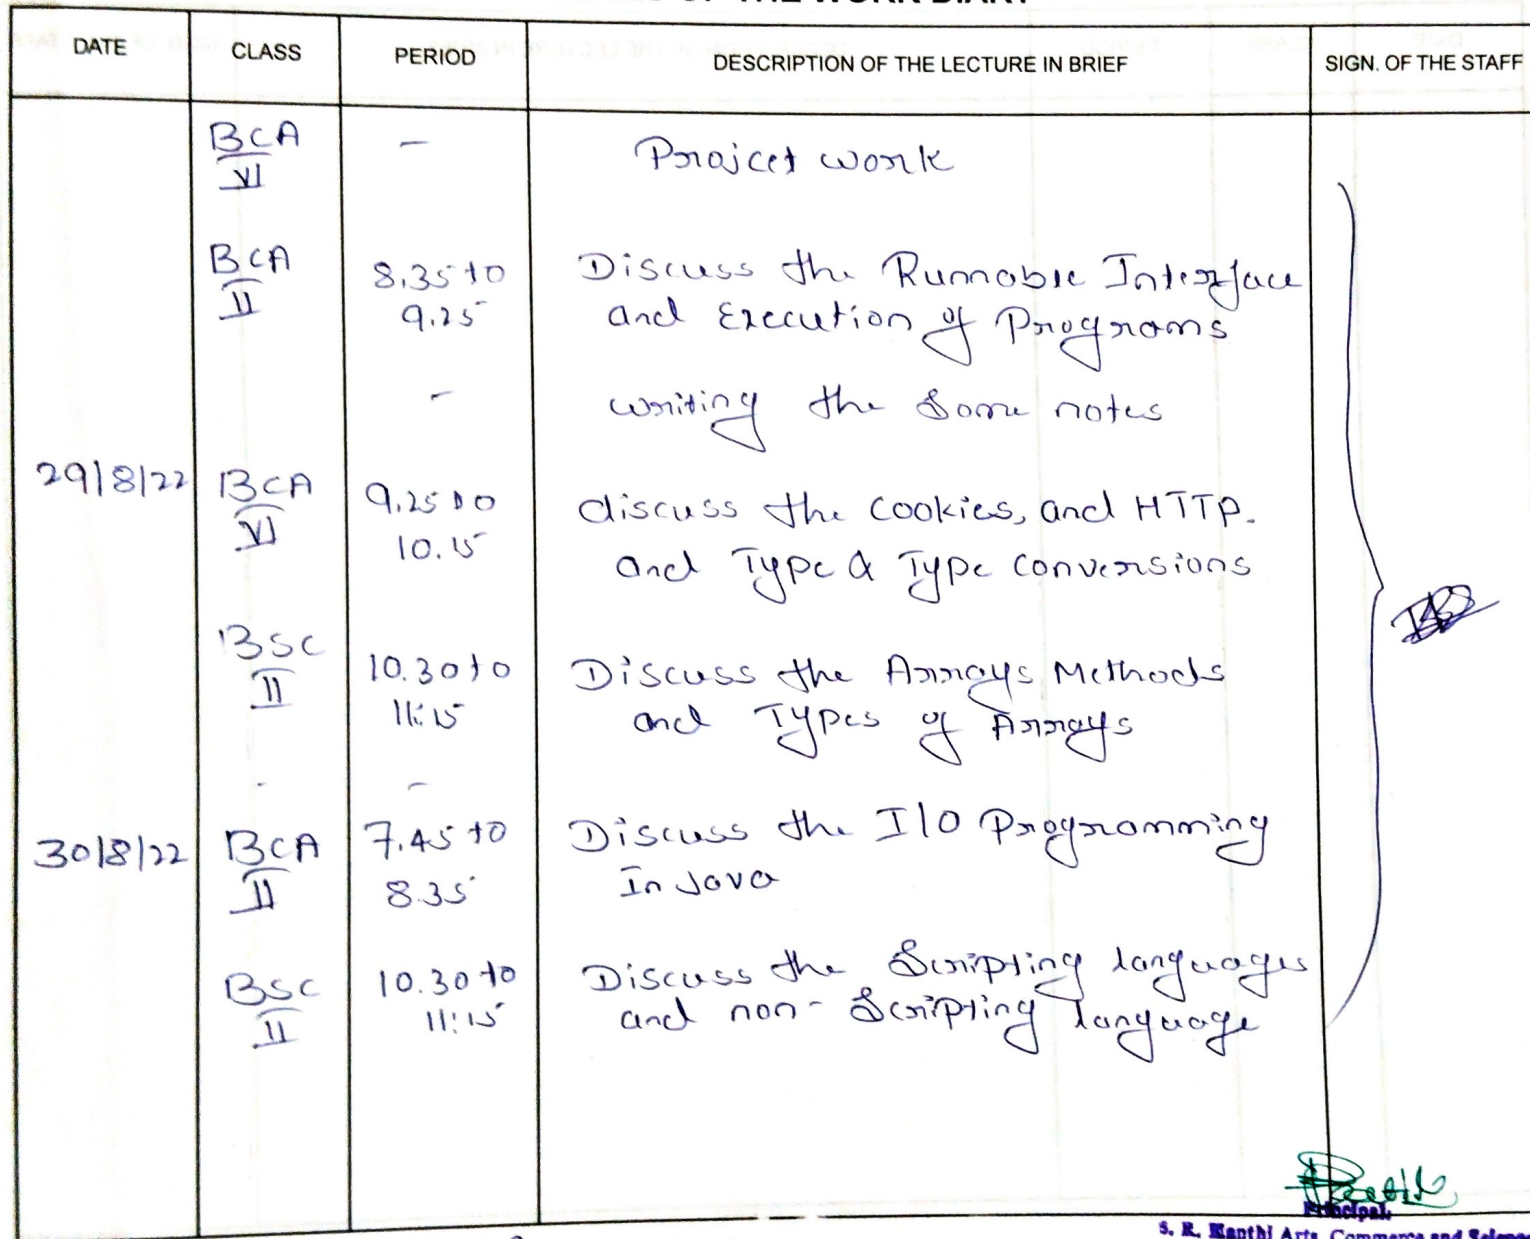 OF THE WORK DIARY
DATE CLASS PERIOD DESCRIPTION OF THE LECTURE IN BRIEF SIGN. OF THE STAFF
BCA - Projcet work
VI
BCA 8.35 to Discuss the Runnable Interface
II 9.25 and Execution of Programs
- writing the Some notes
29/8/22 BCA 9.25 to discuss the cookies, and HTTP.
VI 10.15 and Type & Type conversions
BSC 10.30 to Discuss the Arrays Methods
II 11:15 and Types of Arrays
-
30/8/22 BCA 7.45 to Discuss the I/O Programming
II 8.35 In Java
BSC 10.30 to Discuss the Scripting languages
II 11:15 and non-Scripting language
Principal,
S. R. Kanthi Arts, Commerce and Science